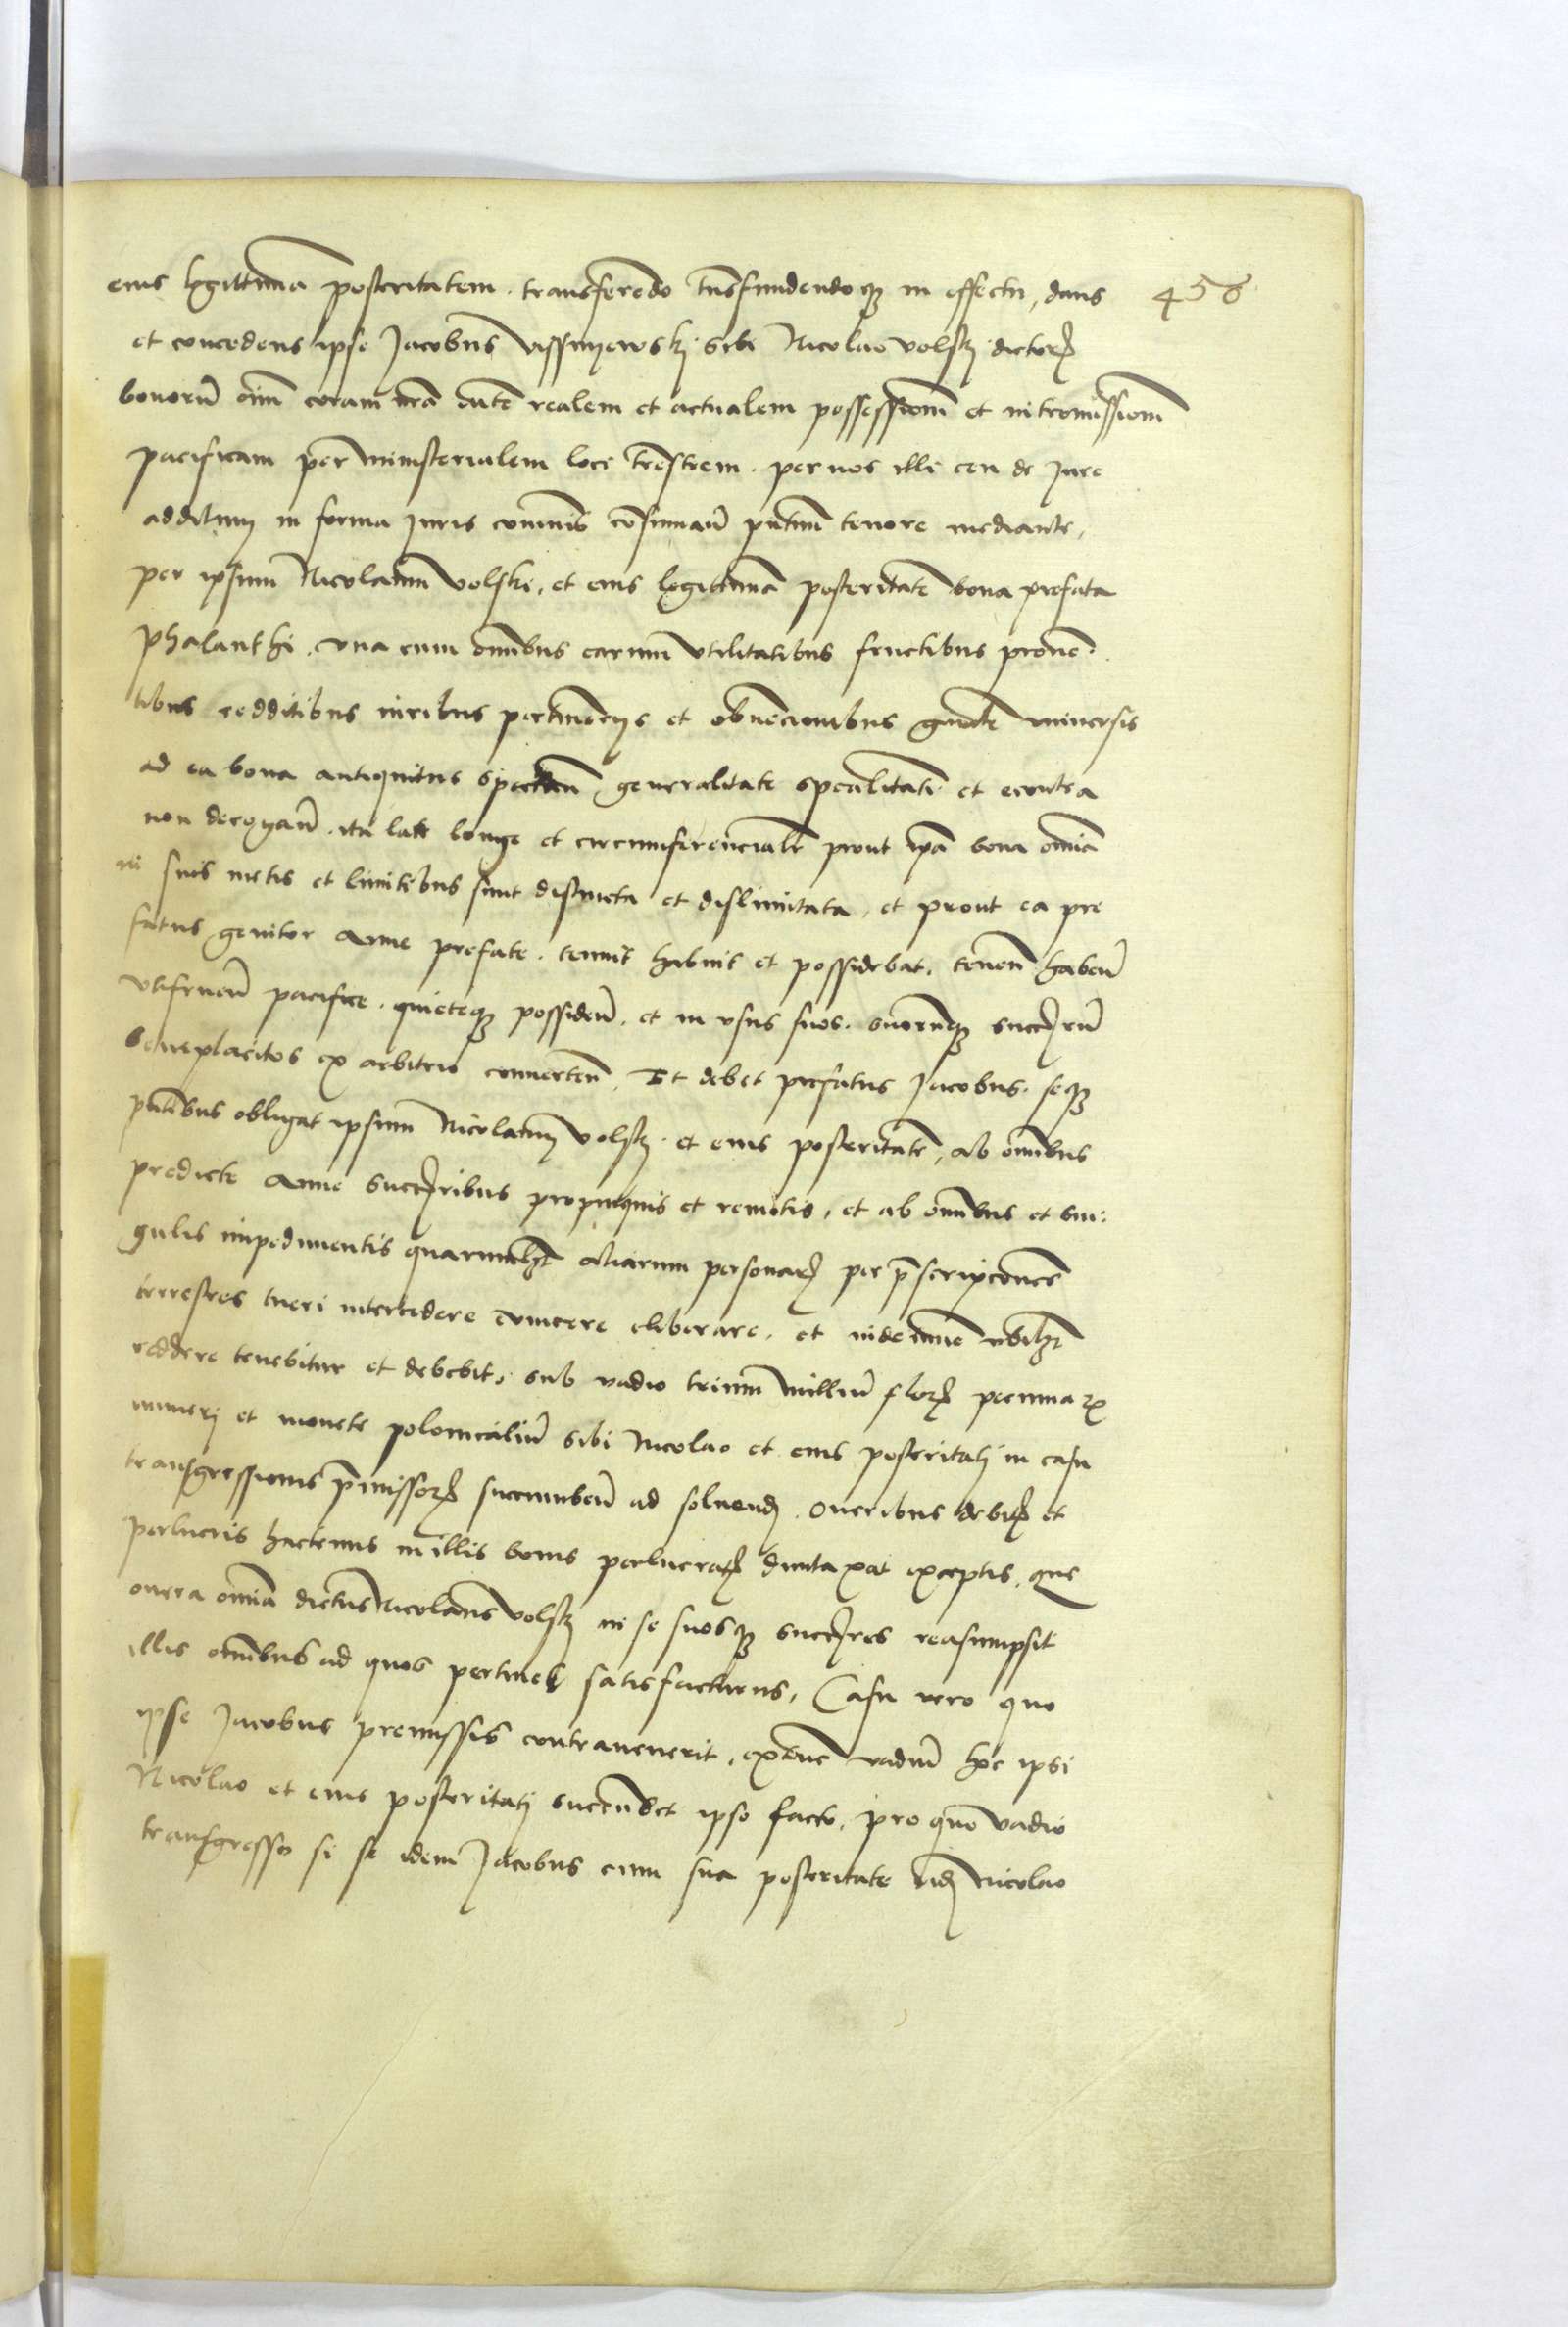 eius legittimā posteritatem . transferendo trāsfundendoqꝫ in effectu, dans 456
et concedens ipse Jacobus Vissnyewskj sibi Nicolao Volskj dictorꝝ
bonorū oīm curam nrā dūtē realem et actualem possessionē et intromissionē
pacificam per ministerialem loci trēstrem . per nos illi ceu de Jure
additum in forma Juris commūis consumaū pūtium tenore mediante,
per ipsum Nicolaum Volski, et eius legittimā posteritatē bona prefata
Phalanthi . vna cum omībus earum vtilitatibus fructibus proven.
tibus redditibus iuribus pertinencijs et obvēcionibus gūdte universis
ad ea bona antiquitus spectan̄ generalitate specialitati et econtra
non derogan̄ . ita late longe et circumferencialr̄ prout ipā bona omīa
in suis metis et limitibus sunt distincta et dislimitata, et prout ea pre
fatus genitor Anne prefate . tenuit habuit et possidebat, tenen̄ haben̄
vtifruen̄ pacifice . quieteqꝫ possiden̄ . et in vsus suos . suorumqꝫ succꝛ̄rū
beneplacitos ex arbitrio converten̄ . Et debet prefatus Jacobus . seqꝫ
pūtibus obligat ipsum Nicolaum Volskj . et eius posteritatē, ab omībus
predicte Anne succꝛ̄ribus propinquis et remotis, et ab omībus et sin:
gulis impedimentis quarumlꝫt aliarum personarꝝ per p̄scripcōnes
terrestres tueri intercidere evincere eliberare . et indemnē vbilꝫt
reddere tenebitur et debebit, sub vadio trium milliū florꝝ pecuniarꝝ
numerj et monete polonicaliū sibi Nicolao et eius posteritatj in casu
transgressionis p̄missorꝝ succumben̄ ad solvendꝫ . Oneribus debitꝝ et
perlucris hactenus in illis bonis perlucratꝝ dumtaxat exceptis, que
onera omīa dictus Nicolaus Volskj in se suosqꝫ succꝛ̄res reasumpsit
illis omībus ad quos pertinet satisfacturus, Casu vero quo
ipse Jacobus premissis contravenerit, extūc vadiū hoc ipsi
Nicolao et eius posteritatj succūbet ipso facto . pro quo vadio
transgresso si se idem Jacobus cum sua posteritate eidꝫ Nicolao